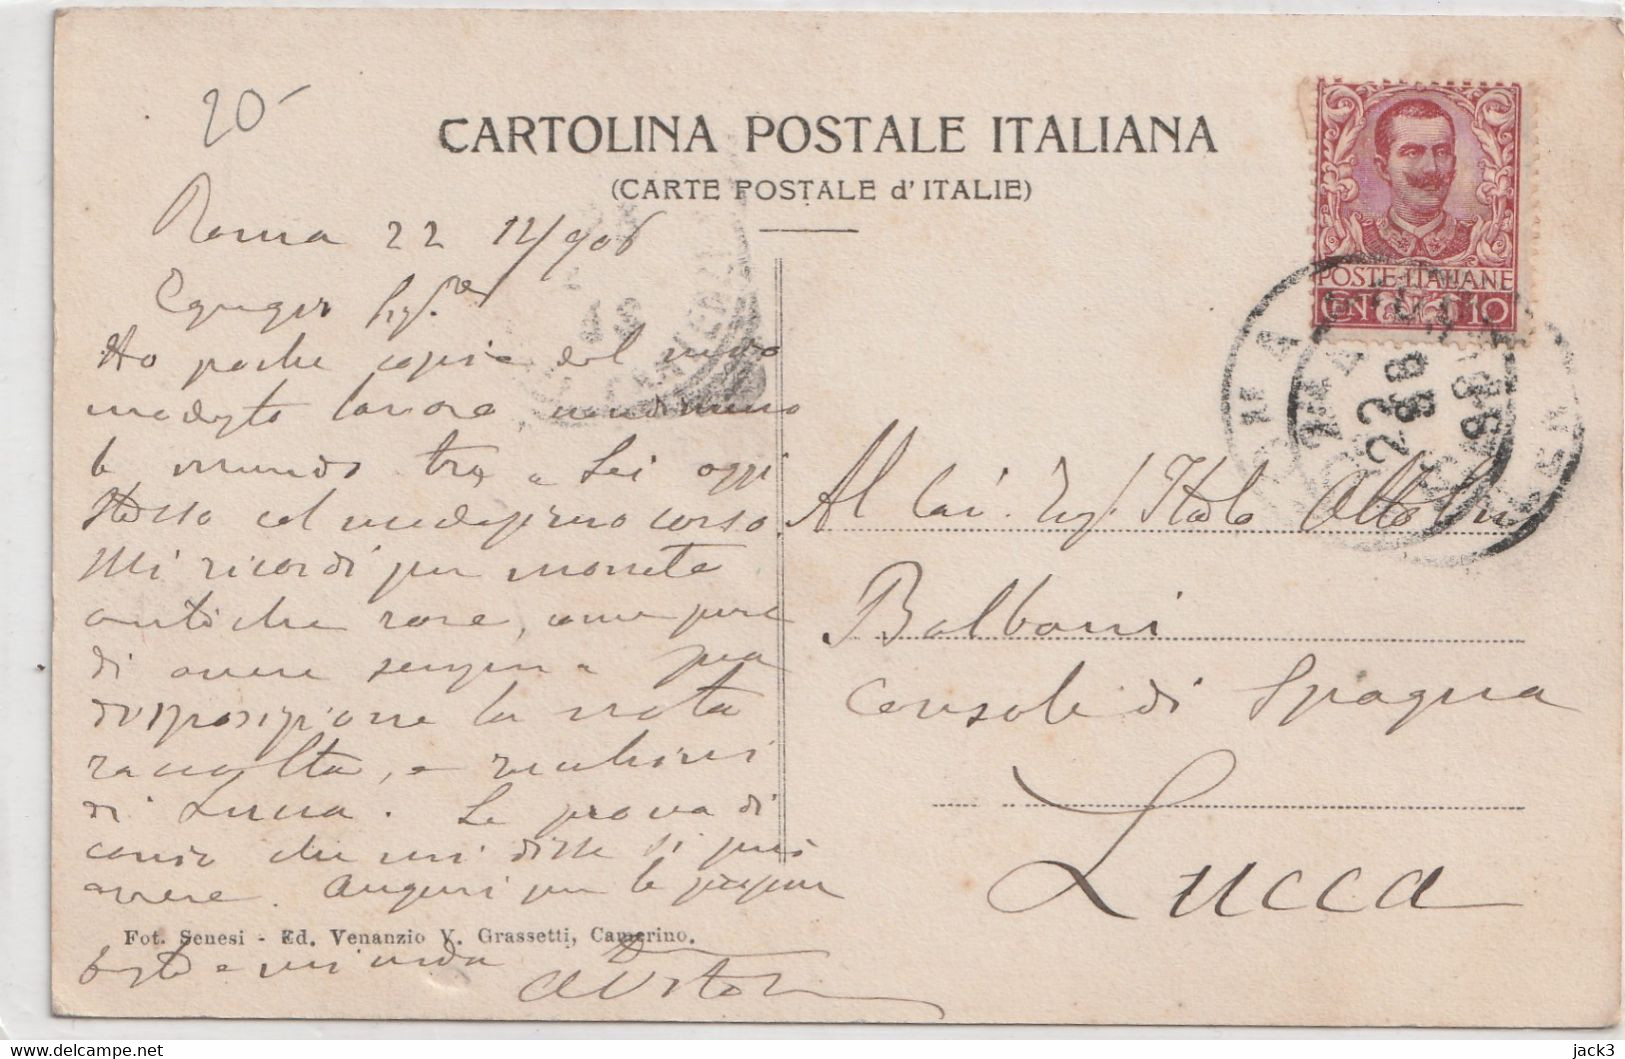 20
CARTOLINA POSTALE ITALIANA
(CARTE POSTALE d'ITALIE)
POSTE ITALIANE
CEN 10
Roma 22 12/906
Ho poche copie del mio
modesto lavoro, nondimeno
le mando tra a Lei oggi
stesso col medesimo corso.
Mi ricordi per monete
antiche rare, come pure
di avere sempre a sua
disposizione la nota
raccolta, e
di Lucca. Le prova di
conio che mi disse si può
avere. Auguri per le prossime
Fot. Senesi - Ed. Venanzio V. Grassetti, Camerino.
feste e mi creda
Al Cav. Italo
Balbani
Console di Spagna
Lucca
delcampe.net
jack3